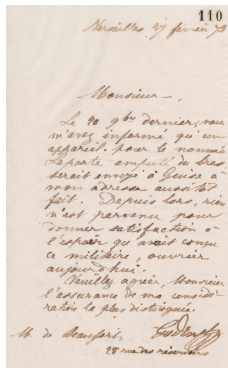 110
Versailles 27 février 73
Monsieur,
Le 20 9bre dernier, vous
m'avez informé qu'un
appareil pour le nommé
Laporte amputé du bras
serait envoyé à Guise à
mon adresse aussitot
fait. Depuis lors, rien
n'est parvenu pour
donner satisfaction à
l'espoir qu'avait conçu
ce militaire, ouvrier
aujourd'hui.
Veuillez agréer, Monsieur
l'assurance de ma considé
ration la plus distinguée.
M. de Beaufort
28 rue des réservoirs